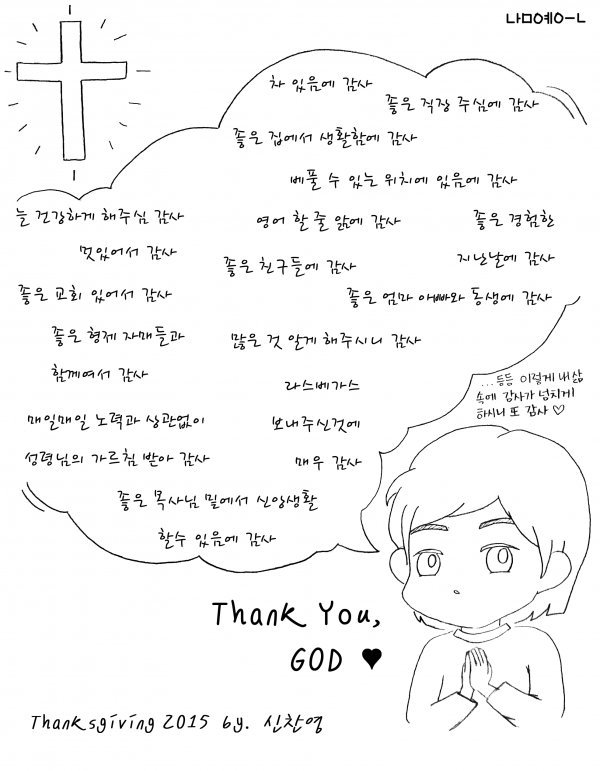 나mo예o-L
차 있음에 감사
좋은 직장 주심에 감사
좋은 집에서 생활함에 감사
베풀 수 있는 위치에 있음에 감사
늘 건강하게 해주심 감사
영어 할 줄 앎에 감사
좋은 경험한
지난날에 감사
멋있어서 감사
좋은 친구들에 감사
좋은 교회 있어서 감사
좋은 엄마 아빠와 동생에 감사
좋은 형제 자매들과
함께여서 감사
많은 것 알게 해주시니 감사
라스베가스
보내주신것에
매우 감사
...등등 이렇게 내 삶
속에 감사가 넘치게
하시니 또 감사 ♡
매일매일 노력과 상관없이
성령님의 가르침 받아 감사
좋은 목사님 밑에서 신앙생활
할수 있음에 감사
Thank You,
GOD ♥
Thanksgiving 2015 by. 신찬영